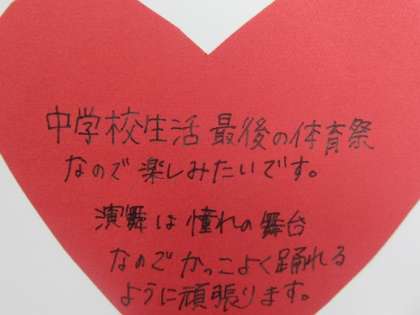 中学校生活 最後の体育祭
なので楽しみたいです。
演舞は憧れの舞台
なのでかっこよく踊れる
ように頑張ります。